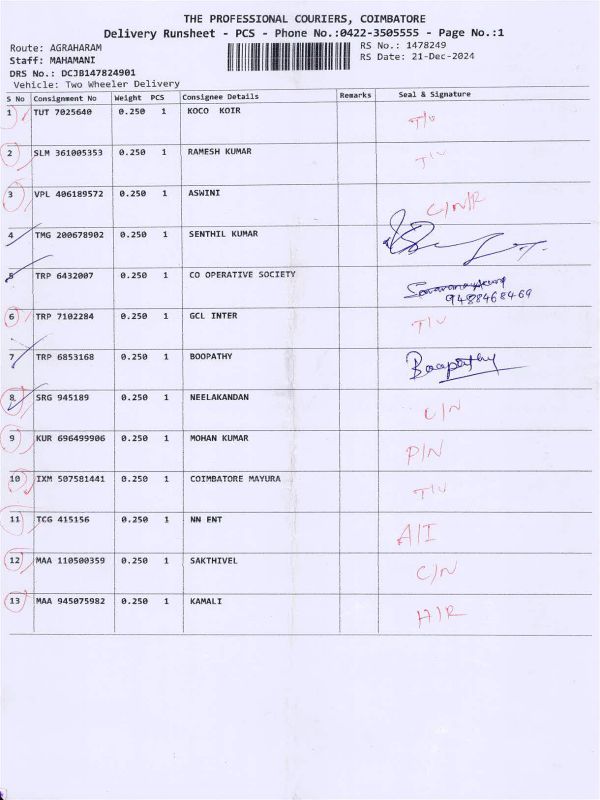 THE PROFESSIONAL COURIERS, COIMBATORE
Delivery Runsheet - PCS - Phone No.:0422-3505555 - Page No.:1
Route: AGRAHARAM RS No.: 1478249
Staff: MAHAMANI RS Date: 21-Dec-2024
DRS No.: DCJB147824901
Vehicle: Two Wheeler Delivery
S No Consignment No Weight PCS Consignee Details Remarks Seal & Signature
1 TUT 7025640 0.250 1 KOCO KOIR T/U
2 SLM 361005353 0.250 1 RAMESH KUMAR T/U
3 VPL 406189572 0.250 1 ASWINI C/N/R
4 TMG 200678902 0.250 1 SENTHIL KUMAR
5 TRP 6432007 0.250 1 CO OPERATIVE SOCIETY
9488468469
6 TRP 7102284 0.250 1 GCL INTER T/U
7 TRP 6853168 0.250 1 BOOPATHY Boopathy
8 SRG 945189 0.250 1 NEELAKANDAN C/N
9 KUR 696499906 0.250 1 MOHAN KUMAR P/N
10 IXM 507581441 0.250 1 COIMBATORE MAYURA T/U
11 TCG 415156 0.250 1 NN ENT A/I
12 MAA 110500359 0.250 1 SAKTHIVEL C/N
13 MAA 945075982 0.250 1 KAMALI H/R